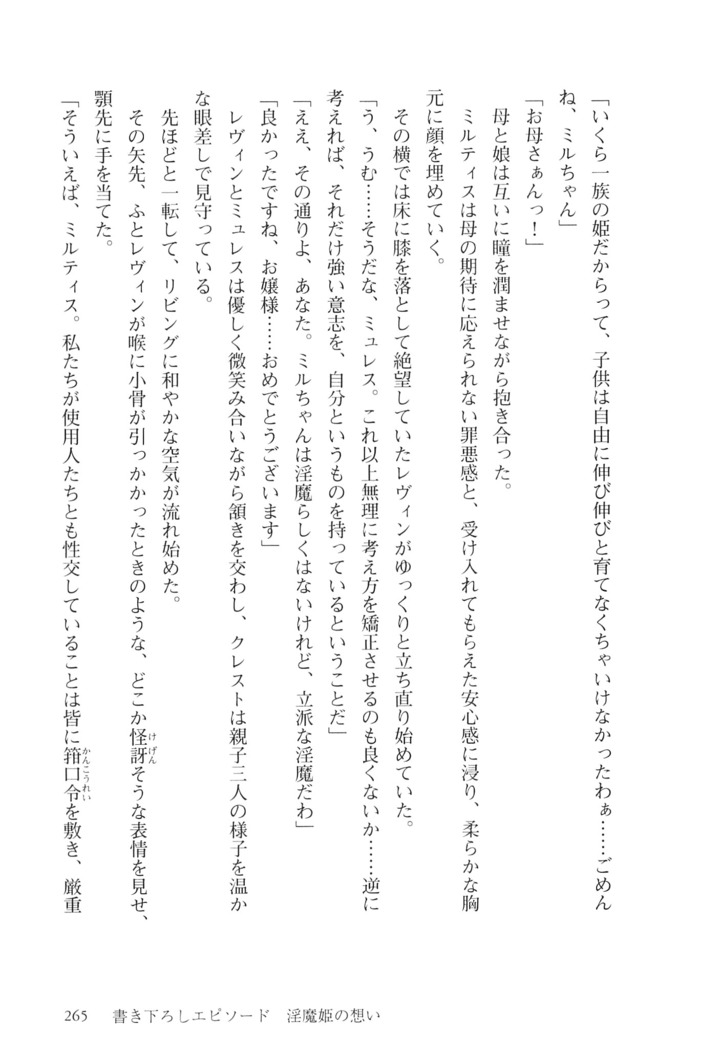 「いくら一族の姫だからって、子供は自由に伸び伸びと育てなくちゃいけなかったわぁ……ごめん
ね、ミルちゃん」
「お母さぁんっ！」
母と娘は互いに瞳を潤ませながら抱き合った。
ミルティスは母の期待に応えられない罪悪感と、受け入れてもらえた安心感に浸り、柔らかな胸
元に顔を埋めていく。
その横では床に膝を落として絶望していたレヴィンがゆっくりと立ち直り始めていた。
「う、うむ……そうだな、ミュレス。これ以上無理に考え方を矯正させるのも良くないか……逆に
考えれば、それだけ強い意志を、自分というものを持っているということだ」
「ええ、その通りよ、あなた。ミルちゃんは淫魔らしくはないけれど、立派な淫魔だわ」
「良かったですね、お嬢様……おめでとうございます」
レヴィンとミュレスは優しく微笑み合いながら頷きを交わし、クレストは親子三人の様子を温か
な眼差しで見守っている。
先ほどと一転して、リビングに和やかな空気が流れ始めた。
その矢先、ふとレヴィンが喉に小骨が引っかかったときのような、どこか怪訝そうな表情を見せ、
けげん
顎先に手を当てた。
「そういえば、ミルティス。私たちが使用人たちとも性交していることは皆に箝口令を敷き、厳重
かんこうれい
265 書き下ろしエピソード 淫魔姫の想い